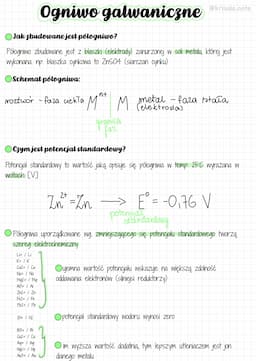 Ogniwo galwaniczne
Jak zbudowane jest półogniwo?
Półogniwo zbudowane jest z blaszki (elektrody) zanurzonej w soli metalu, której jest
wykonana. np. blaszka cynkowa to ZnSO4 (siarczan cynku)
Schemat półogniwa:
roztwór - faza ciekła Mⁿ⁺ | M metal - faza stała
(elektroda)
granica
faz
Czym jest potencjał standardowy?
Potencjał standardowy to wartość jaką opisuje się półogniwa w temp. 25°C wyrażana w
woltach [V]
Zn²⁺ = Zn → E° = -0,76 V
potencjał
standardowy
Półogniwa uporządkowane wg. zmniejszającego się potencjału standardowego tworzą
szereg elektrochemiczny
ujemna wartość potencjału wskazuje na większą zdolność
oddawania elektronów (silniejsi reduktorzy)
potencjał standardowy wodoru wynosi zero
im wyższa wartość dodatnia, tym lepszym utleniaczem jest jon
danego metalu